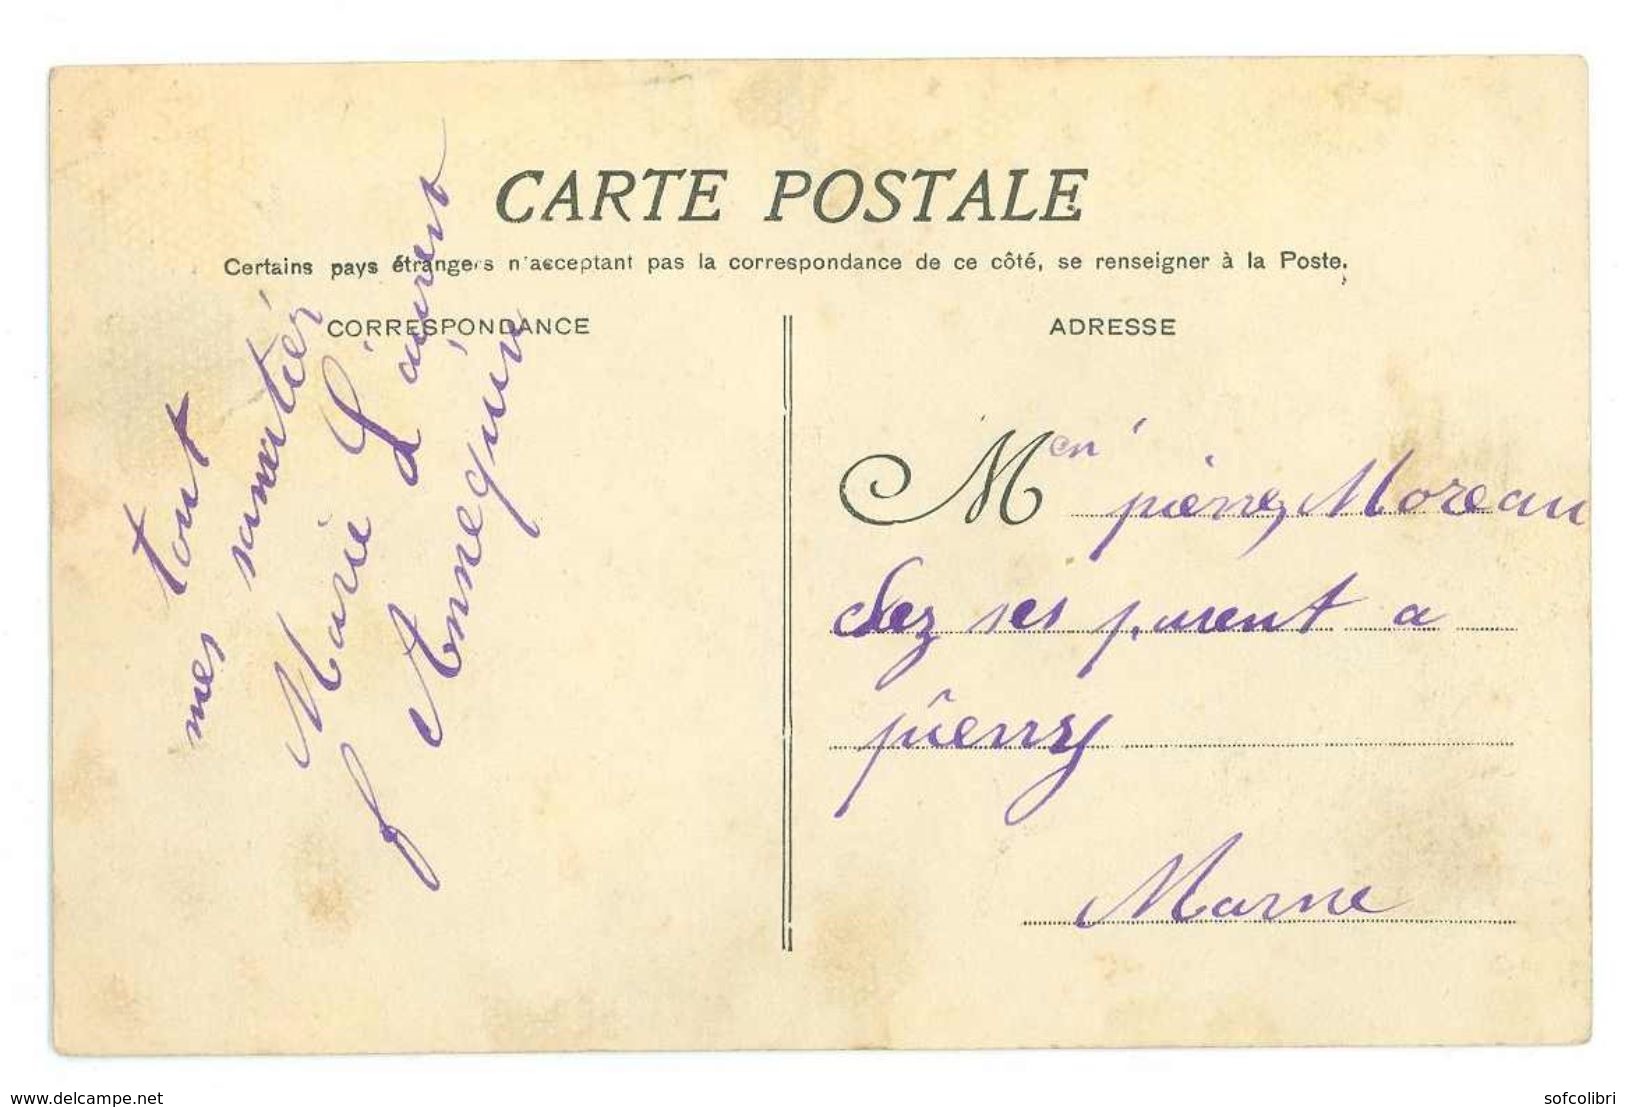 CARTE POSTALE
Certains pays étrangers n'acceptant pas la correspondance de ce côté, se renseigner à la Poste.
CORRESPONDANCE
tout
mes
Marie Laurent
f Annequin
ADRESSE
Men pierre Moreau
chez ses parent a
pierry
Marne
www.delcampe.net
sofcolibri